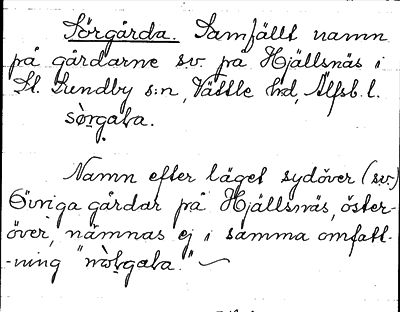 Sörgårda. Samfällt namn
på gårdarne sv. på Hjällsnäs i
St. Lundby s:n, Vättle hd, Älfsb. l.
sòrgaɩa.
Namn efter läget sydöver (sv.)
Övriga gårdar på Hjällsnäs, öster-
över, nämnas ej i samma omfatt-
-ning "nòlgaɩa."